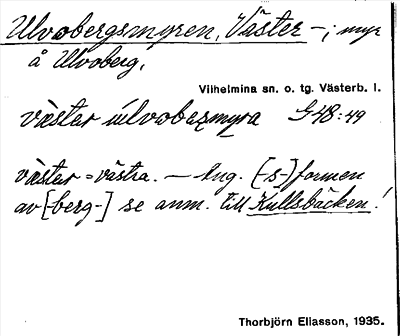 Ulvobergsmyren, Väster –; myr
å Ulvoberg.
Vilhelmina sn. o. tg. Västerb. l.
vàstar úlvobermyra G48:49
vàstar = västra. – Ang. [-s-]formen
av [-berg-] se anm. till Kullsbäcken!
Thorbjörn Eliasson, 1935.